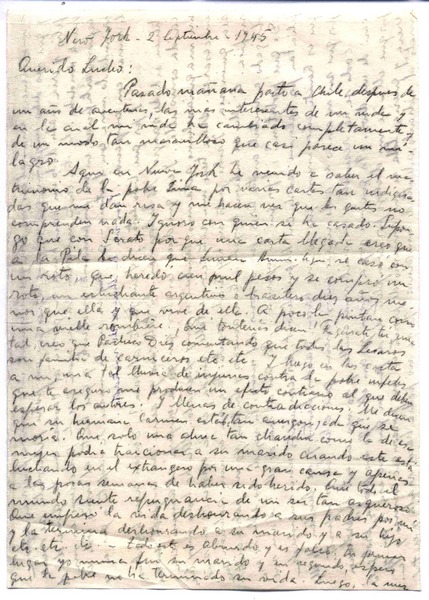 New York - 2 Septiembre - 1945
Querido Lucho:
Pasado mañana parto a Chile, despues de
un año de aventuras, las mas interesantes de mi vida y
en la cual mi vida ha cambiado completamente y
de un modo tan maravilloso que casi parece un mi-
lagro.
Aqui en Nueva York he venido a saber el ma-
trimonio de la pobre por varias cartas tan indigna-
das que me dan risa y me hacen ver que la gente no
comprenden nada. Ignoro con quien se ha casado. Supon-
go que con por que una carta llegada creo que
a la dice que se caso con
un roto, que heredó cien mil pesos y se compró un
roto, un estudiante argentino o brasilero diez años me-
nor que ella y que vive de ella. A poco la pintan como
una mueble Que tonterias dicen! Figurate tu que
tal creo que comentando que todos los
son familia de carniceros etc etc. Y luego en las cartas
a mi, una tal lluvia de injurias contra la pobre infeliz
que te aseguro me producen un efecto contrario al que deben
esperar los autores. Y llenas de contradicciones. Me dicen
que su hermana Carmen está tan avergonzada que se
moria. Que solo una alma tan como la de esa
mujer podia traicionar a su marido cuando este está
luchando en el extrangero por una gran causa y apenas
a las pocas semanas de haber sido herido. Que todo el
mundo siente repugnancia de un ser tan asqueroso.
Que empieza la vida deshonrando a sus padres por mi
y la termina deshonrando a su marido y a su hijo
etc. etc. todo es absurdo y es falso. En primer
lugar yo nunca fui su marido y en segundo, espero
que la pobre no ha terminado su vida. Luego, la mu-